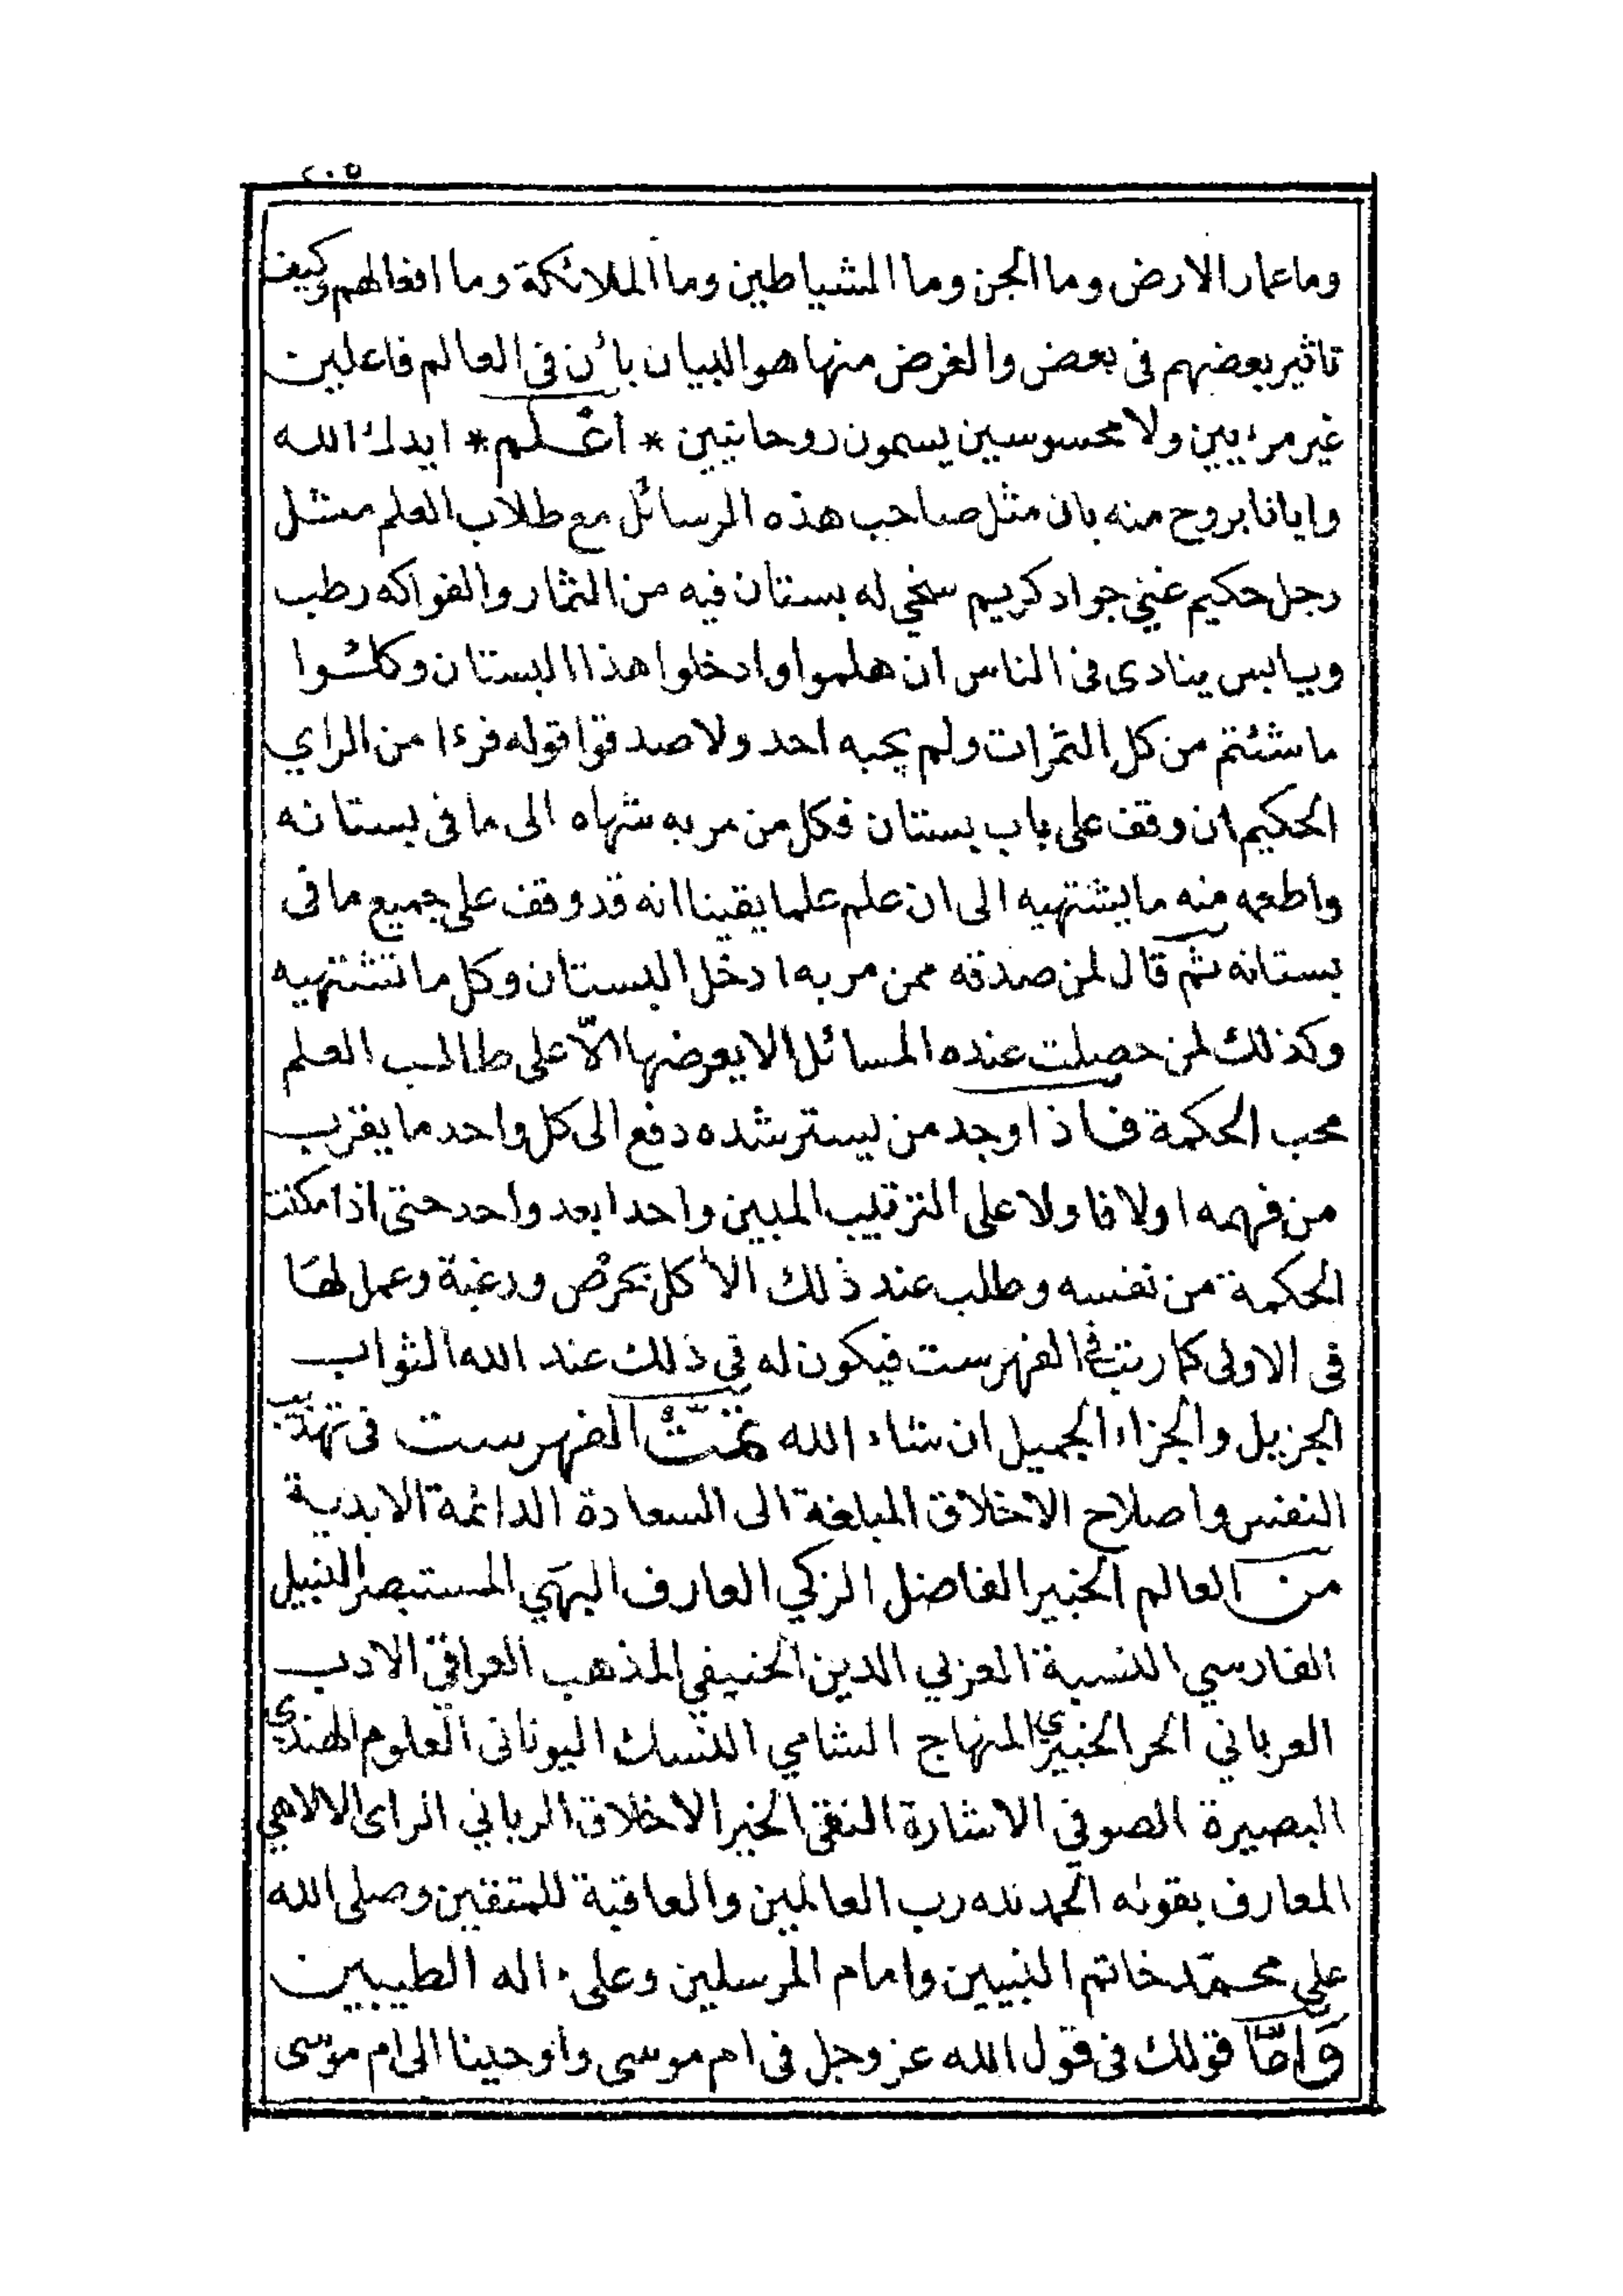 ٢٠٥
وما عمار الارض وما الجن وما الشياطين وما الملائكة وما افعالهم وكيف
تاثير بعضهم فى بعض والغرض منها هو البيان بأن فى العالم فاعلين
غير مرءيين ولا محسوسين يسمون روحانيين * اعلم * ايدك الله
وايانا بروح منه بان مثل صاحب هذه الرسائل مع طلاب العلم مثل
رجل حكيم غني جواد كريم سخي له بستان فيه من الثمار والفواكه رطب
ويابس ينادى فى الناس ان هلموا وادخلوا هذا البستان وكلوا
ما شئتم من كل الثمرات ولم يجبه احد ولا صدقوا قوله فرءا من الراي
الحكيم ان وقف على باب بستان فكل من مر به شهاه الى ما فى بستانه
واطعمه منه ما يشتهيه الى ان علم علما يقينا انه قد وقف على جميع ما فى
بستانه ثم قال لمن صدقه ممن مر به ادخل البستان وكل ما تشتهيه
وكذلك لمن حصلت عنده المسائل الا يعرضها الّا على طالب العلم
محب الحكمة فاذا وجد من يسترشده دفع الى كل واحد ما يقرب
من فهمه اولا فاولا على الترتيب المبين واحدا بعد واحد حتى اذا مكنت
الحكمة من نفسه وطلب عند ذلك الأكل بحرص ورغبة وعمل لها
فى الاولى كما رتب فى الفهرست فيكون له فى ذلك عند الله الثواب
الجزيل والجزاء الجميل ان شاء الله تمّت الفهرست فى تهذيب
النفس واصلاح الاخلاق المبلغة الى السعادة الدائمة الابدية
من العالم الخبير الفاضل الزكي العارف البهي المستبصر النبيل
الفارسي النسبة العربي الدين الحنيفي المذهب العراقي الادب
العرباني الحر الخبيري المنهاج الشامي النسك اليونانى العلوم الهندي
البصيرة الصوفى الاشارة النقى الخير الاخلاق الرباني الراى الالاهي
المعارف بقوله الحمد لله رب العالمين والعاقبة للمتقين وصلى الله
على محمّد خاتم النبيين وامام المرسلين وعلى ءاله الطيبين
وَامّا قولك فى قول الله عز وجل فى ام موسى وأوحينا الى ام موسى